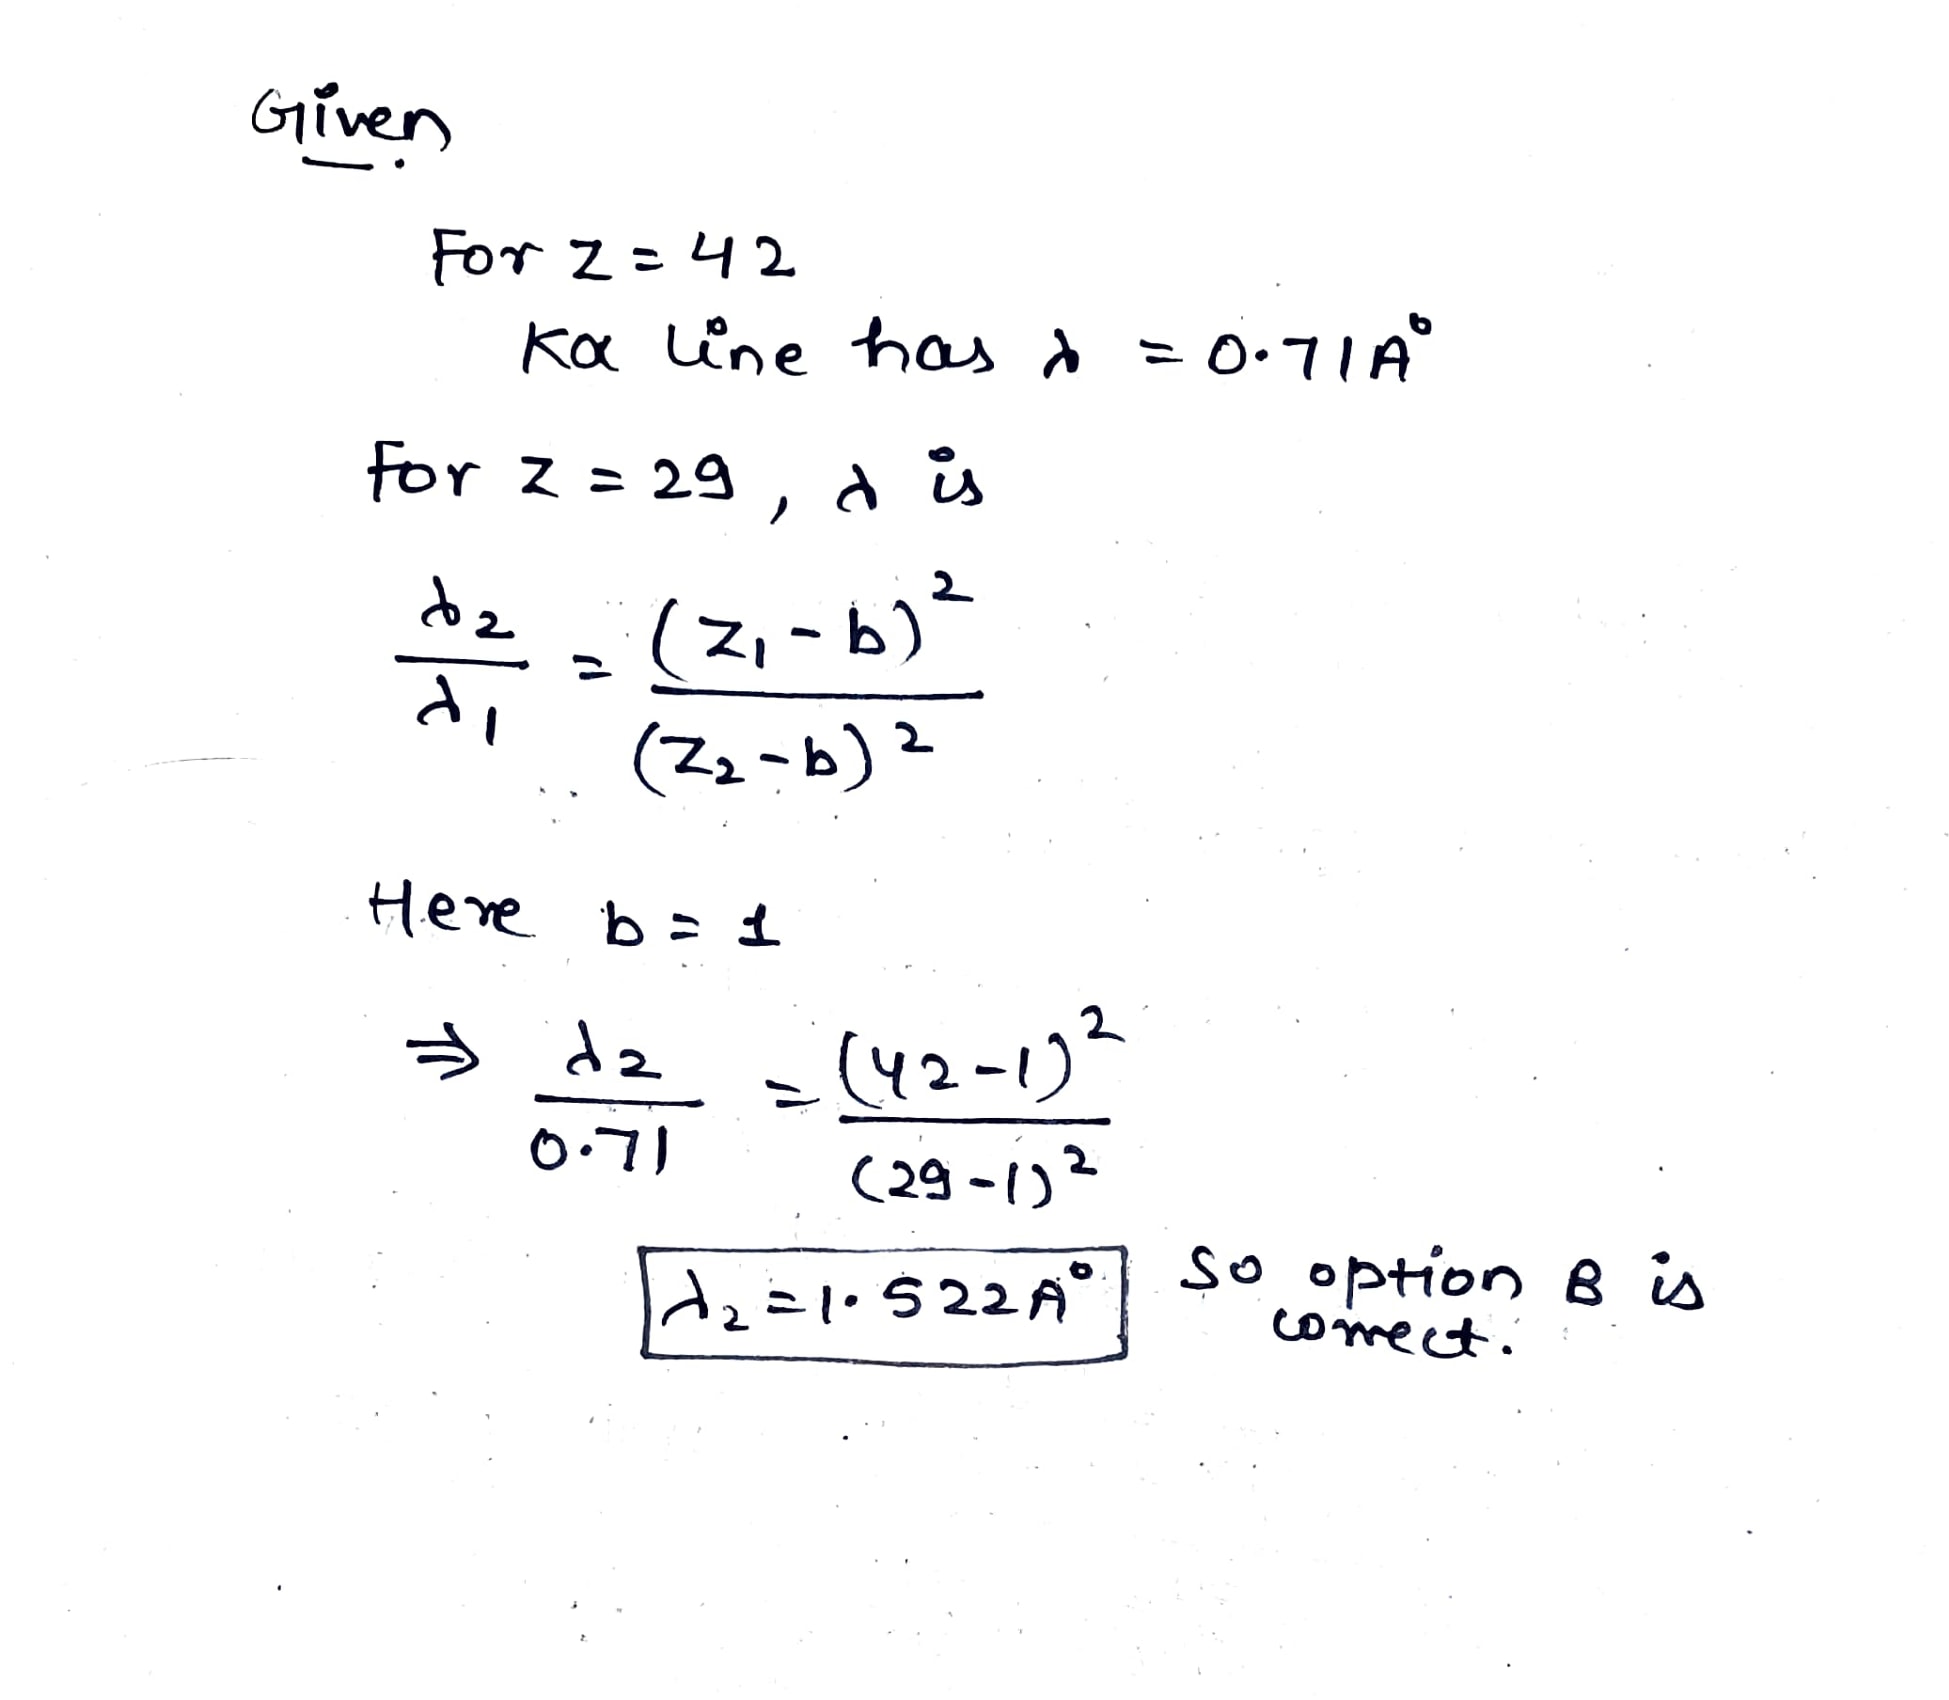 Given
For Z = 42
Kα line has λ = 0.71 A°
For Z = 29, λ is
λ2/λ1 = (Z1-b)²/(Z2-b)²
Here b = 1
⇒ λ2/0.71 = (42-1)²/(29-1)²
λ2 = 1.522 A° So option B is
correct.